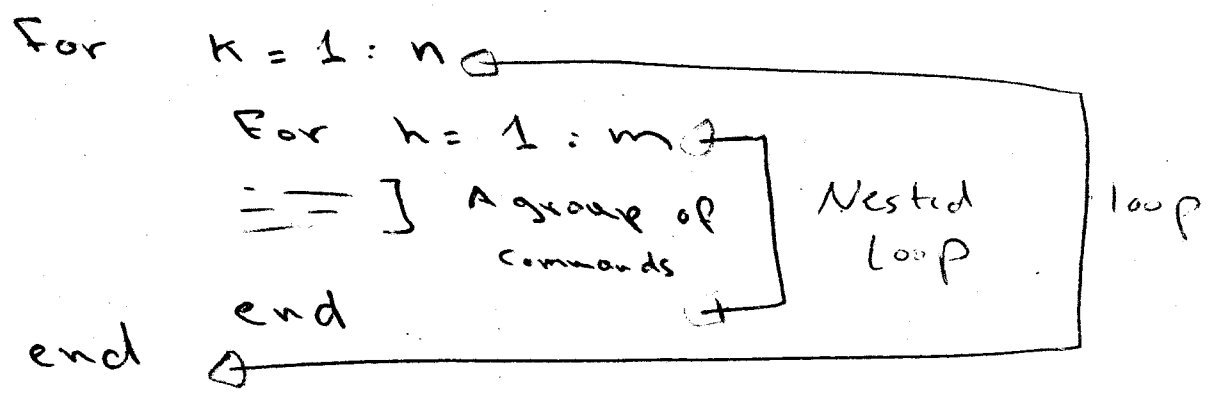 for k = 1 : n
for h = 1 : m
] A group of
commands
end
end
Nested
Loop
loop